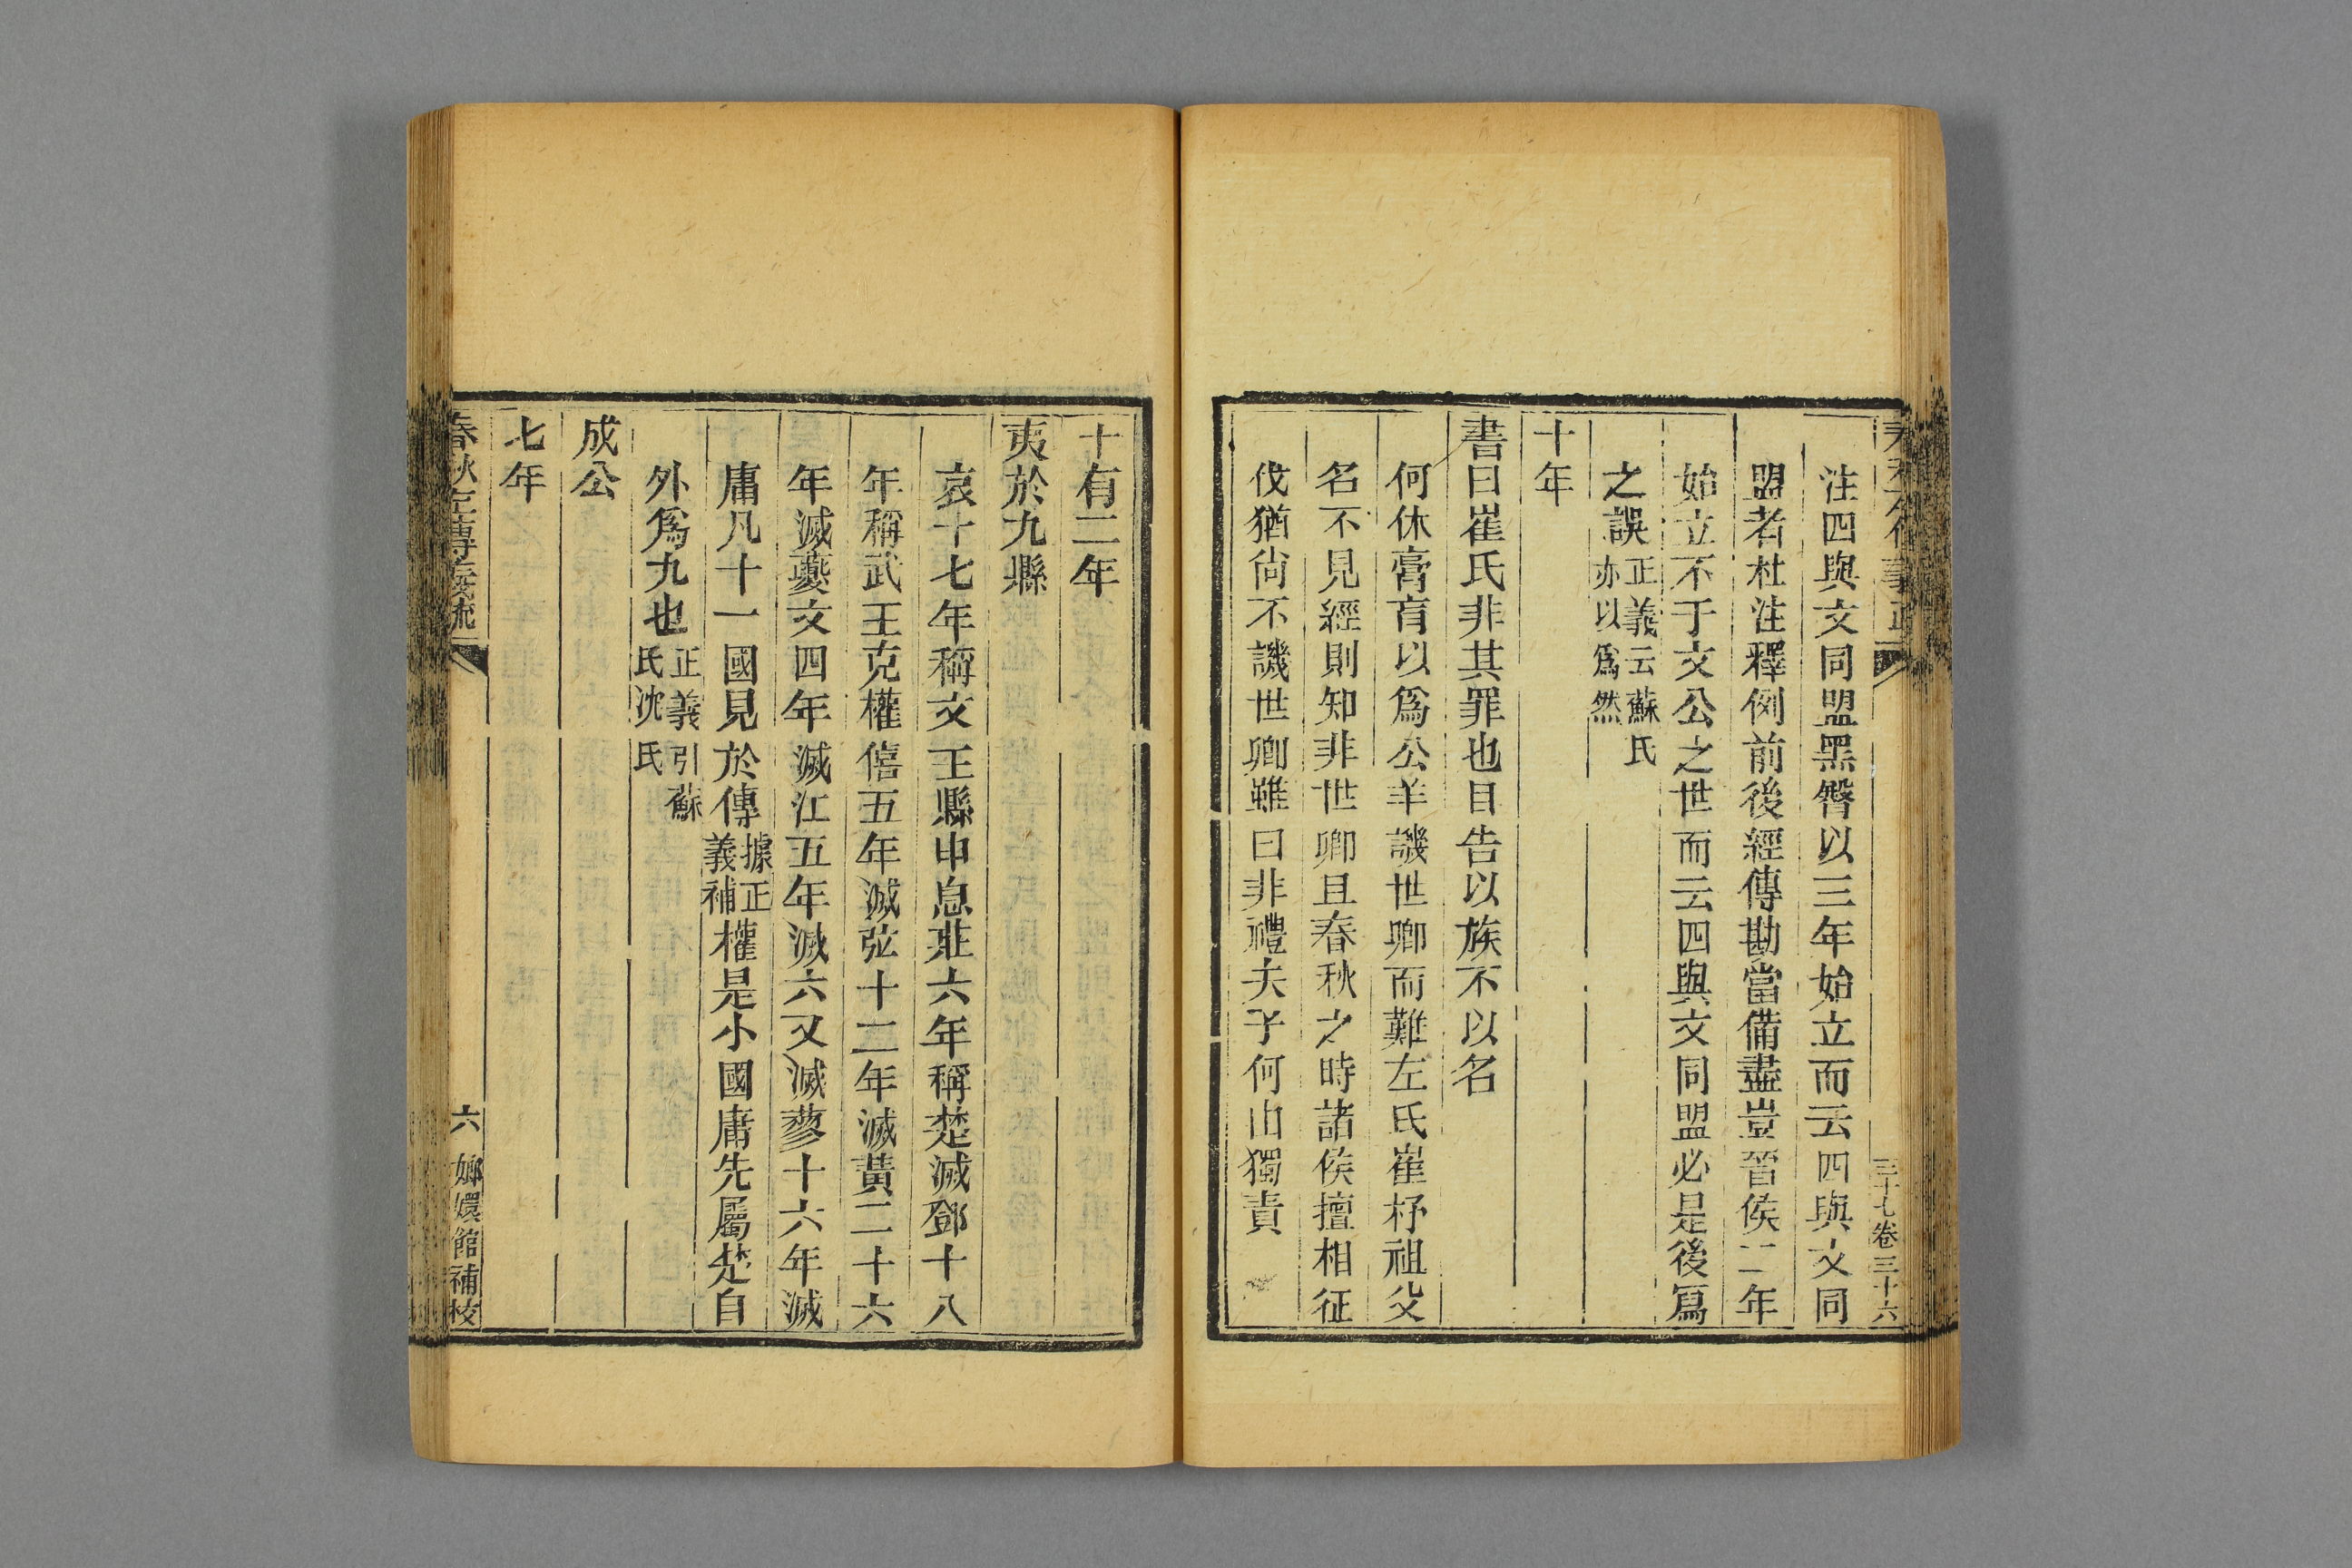 三十七卷三十六
注四與文同盟黑臀以三年始立而云四與文同
盟者杜注釋例前後經傳勘當備盡豈晉侯二年
始立不于文公之世而云四與文同盟必是後寫
之誤正義云蘇氏亦以爲然
十年
書曰崔氏非其罪也且告以族不以名
何休膏肓以爲公羊譏世卿而難左氏崔杼祖父
名不見經則知非世卿且春秋之時諸侯擅相征
伐猶尙不譏世卿雖曰非禮夫子何由獨責
十有二年
夷於九縣
哀十七年稱文王縣申息莊六年稱楚滅鄧十八
年稱武王克權僖五年滅弦十二年滅黃二十六
年滅夔文四年滅江五年滅六又滅蓼十六年滅
庸凡十一國見於傳據正義補權是小國庸先屬楚自
外爲九也正義引蘇氏沈氏
成公
七年
春秋左傳義疏
六
嫏嬛館補校